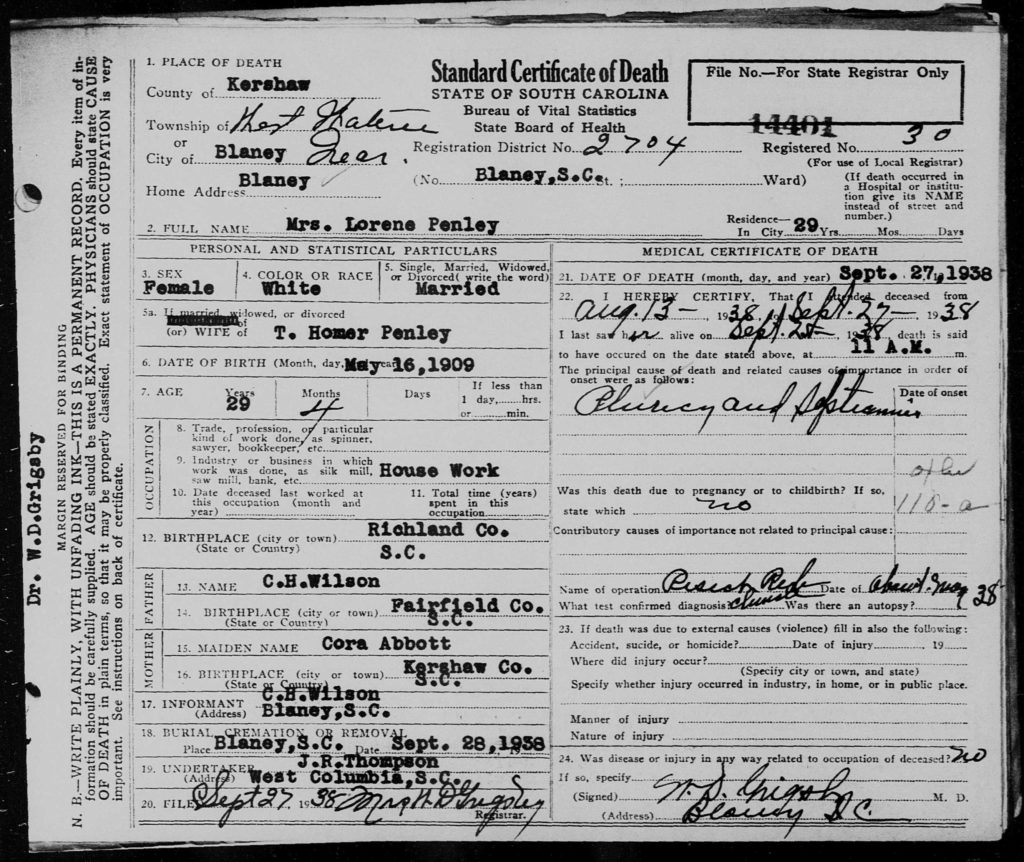 N. B.—WRITE PLAINLY, WITH UNFADING INK—THIS IS A PERMANENT RECORD. Every item of in-
formation should be carefully supplied. AGE should be stated EXACTLY. PHYSICIANS should state CAUSE
OF DEATH in plain terms, so that it may be properly classified. Exact statement of OCCUPATION is very
important. See instructions on back of certificate.
MARGIN RESERVED FOR BINDING
Dr. W.D.Grigsby
Standard Certificate of Death
STATE OF SOUTH CAROLINA
Bureau of Vital Statistics
State Board of Health
File No.—For State Registrar Only
14401
1. PLACE OF DEATH
County of Kershaw
Township of West Wateree
or
City of Blaney Near
Home Address Blaney
Registration District No. 2704
Registered No. 30
(For use of Local Registrar)
(No. Blaney,S.C. St.; Ward)
(If death occurred in
a Hospital or institu-
tion give its NAME
instead of street and
number.)
2. FULL NAME Mrs. Lorene Penley
Residence—
In City 29 Yrs. Mos. Days
PERSONAL AND STATISTICAL PARTICULARS
3. SEX
Female
4. COLOR OR RACE
White
5. Single, Married, Widowed,
or Divorced (write the word)
Married
5a. If married, widowed, or divorced
(or) WIFE of T. Homer Penley
6. DATE OF BIRTH (Month, day, year) May 16,1909
7. AGE Years 29 Months 4 Days
If less than
1 day, hrs.
or min.
OCCUPATION
8. Trade, profession, or particular
kind of work done, as spinner,
sawyer, bookkeeper, etc.
9. Industry or business in which
work was done, as silk mill,
saw mill, bank, etc. House Work
10. Date deceased last worked at
this occupation (month and
year)
11. Total time (years)
spent in this
occupation
12. BIRTHPLACE (city or town) Richland Co.
(State or Country) S.C.
FATHER
13. NAME C.H.Wilson
14. BIRTHPLACE (city or town) Fairfield Co.
(State or Country) S.C.
MOTHER
15. MAIDEN NAME Cora Abbott
16. BIRTHPLACE (city or town) Kershaw Co.
(State or Country) S.C.
17. INFORMANT C.H.Wilson
(Address) Blaney,S.C.
18. BURIAL, CREMATION OR REMOVAL
Place Blaney,S.C. Date Sept. 28,1938
19. UNDERTAKER J.R.Thompson
(Address) West Columbia,S.C.
20. FILED Sept 27 1938 Mrs W D Grigsby
Registrar.
MEDICAL CERTIFICATE OF DEATH
21. DATE OF DEATH (month, day, and year) Sept. 27,1938
22. I HEREBY CERTIFY, That I attended deceased from
Aug. 13 — , 1938, to Sept. 27 — , 1938
I last saw her alive on Sept. 25 — , 1938, death is said
to have occured on the date stated above, at 11 A.M. m.
The principal cause of death and related causes of importance in order of
onset were as follows:
Date of onset
Pluricy and Septicemia
110-a
Was this death due to pregnancy or to childbirth? If so,
state which no
Contributory causes of importance not related to principal cause:
Name of operation Date of about May 38
What test confirmed diagnosis? Was there an autopsy?
23. If death was due to external causes (violence) fill in also the following:
Accident, sucide, or homicide? Date of injury 19
Where did injury occur?
(Specify city or town, and state)
Specify whether injury occurred in industry, in home, or in public place.
Manner of injury
Nature of injury
24. Was disease or injury in any way related to occupation of deceased? no
If so, specify
(Signed) W. D. Grigsby M. D.
(Address) Blaney S.C.